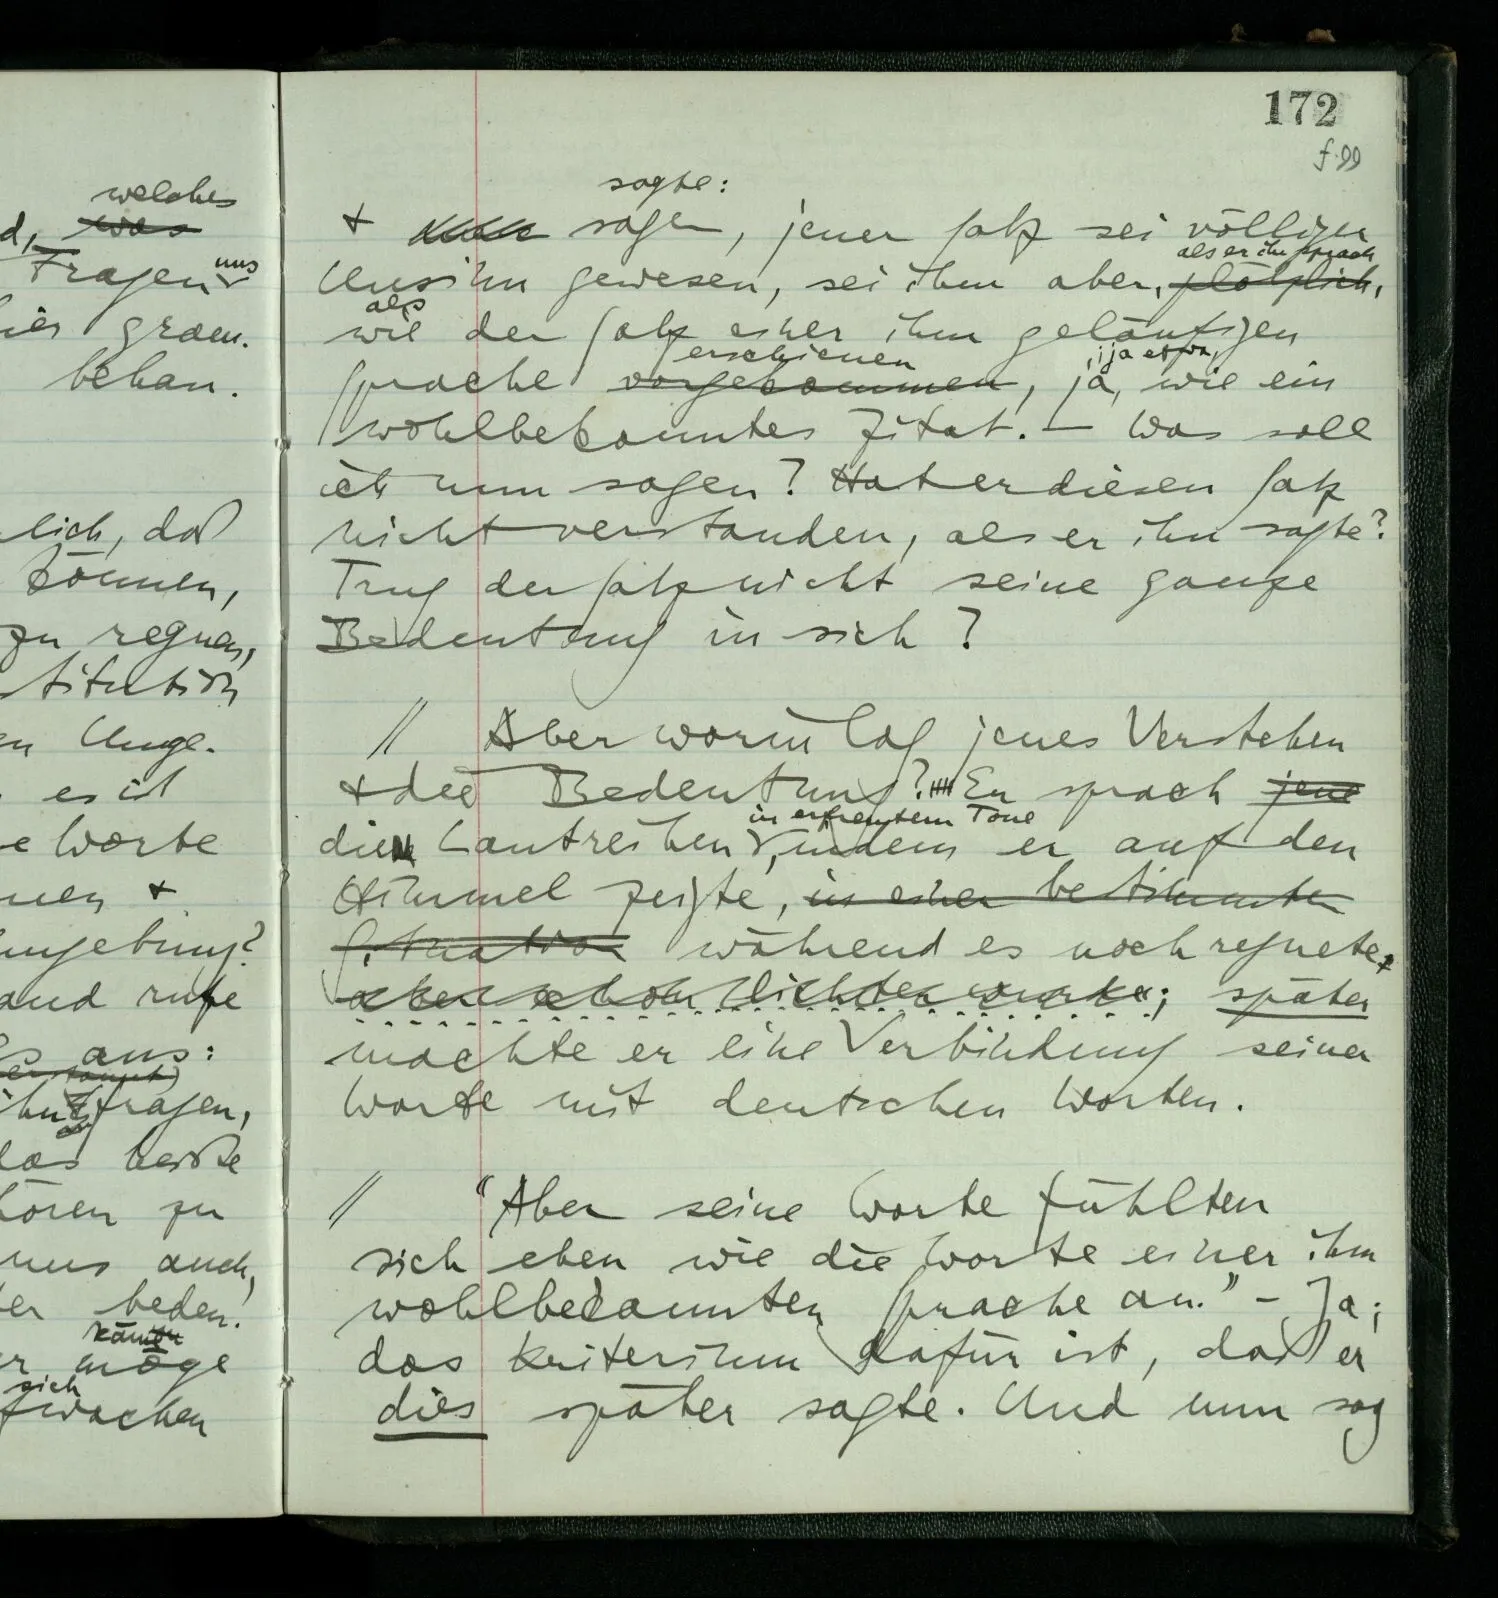 welches
d, was
Fragen uns
hier gram.
behan.
lich, daß
können,
zu regnen,
stitution
en Umge-
es ist
e Worte
nen +
mgebung?
and rufe
es aus:
fragen,
das heiße
hören zu
uns auch,
er beden-
kämen
er möge
sich
fwachen
172
f.99
sagte:
+ sagen, jener Satz sei völliger
als er ihn sprach
Unsinn gewesen, sei ihm aber, plötzlich,
als
wie der Satz einer ihm geläufigen
erschienen ja etwa,
Sprache vorgekommen, ja, wie ein
wohlbekanntes Zitat. – Was soll
ich nun sagen? Hat er diesen Satz
nicht verstanden, als er ihn sagte?
Trug der Satz nicht seine ganze
Bedeutung in sich?
// Aber worin lag jenes Verstehen
+ die Bedeutung? Er sprach jene
in erfreutem Tone
die Lautreihen, indem er auf den
Himmel zeigte, in einer bestimmten
Situation während es noch regnete,
aber schon lichter wurde; später
machte er eine Verbindung seiner
Worte mit deutschen Worten.
// "Aber seine Worte fühlten
sich eben wie die Worte einer ihm
wohlbekannten Sprache an." – Ja;
das Kriterium dafür ist, daß er
dies später sagte. Und nun sag